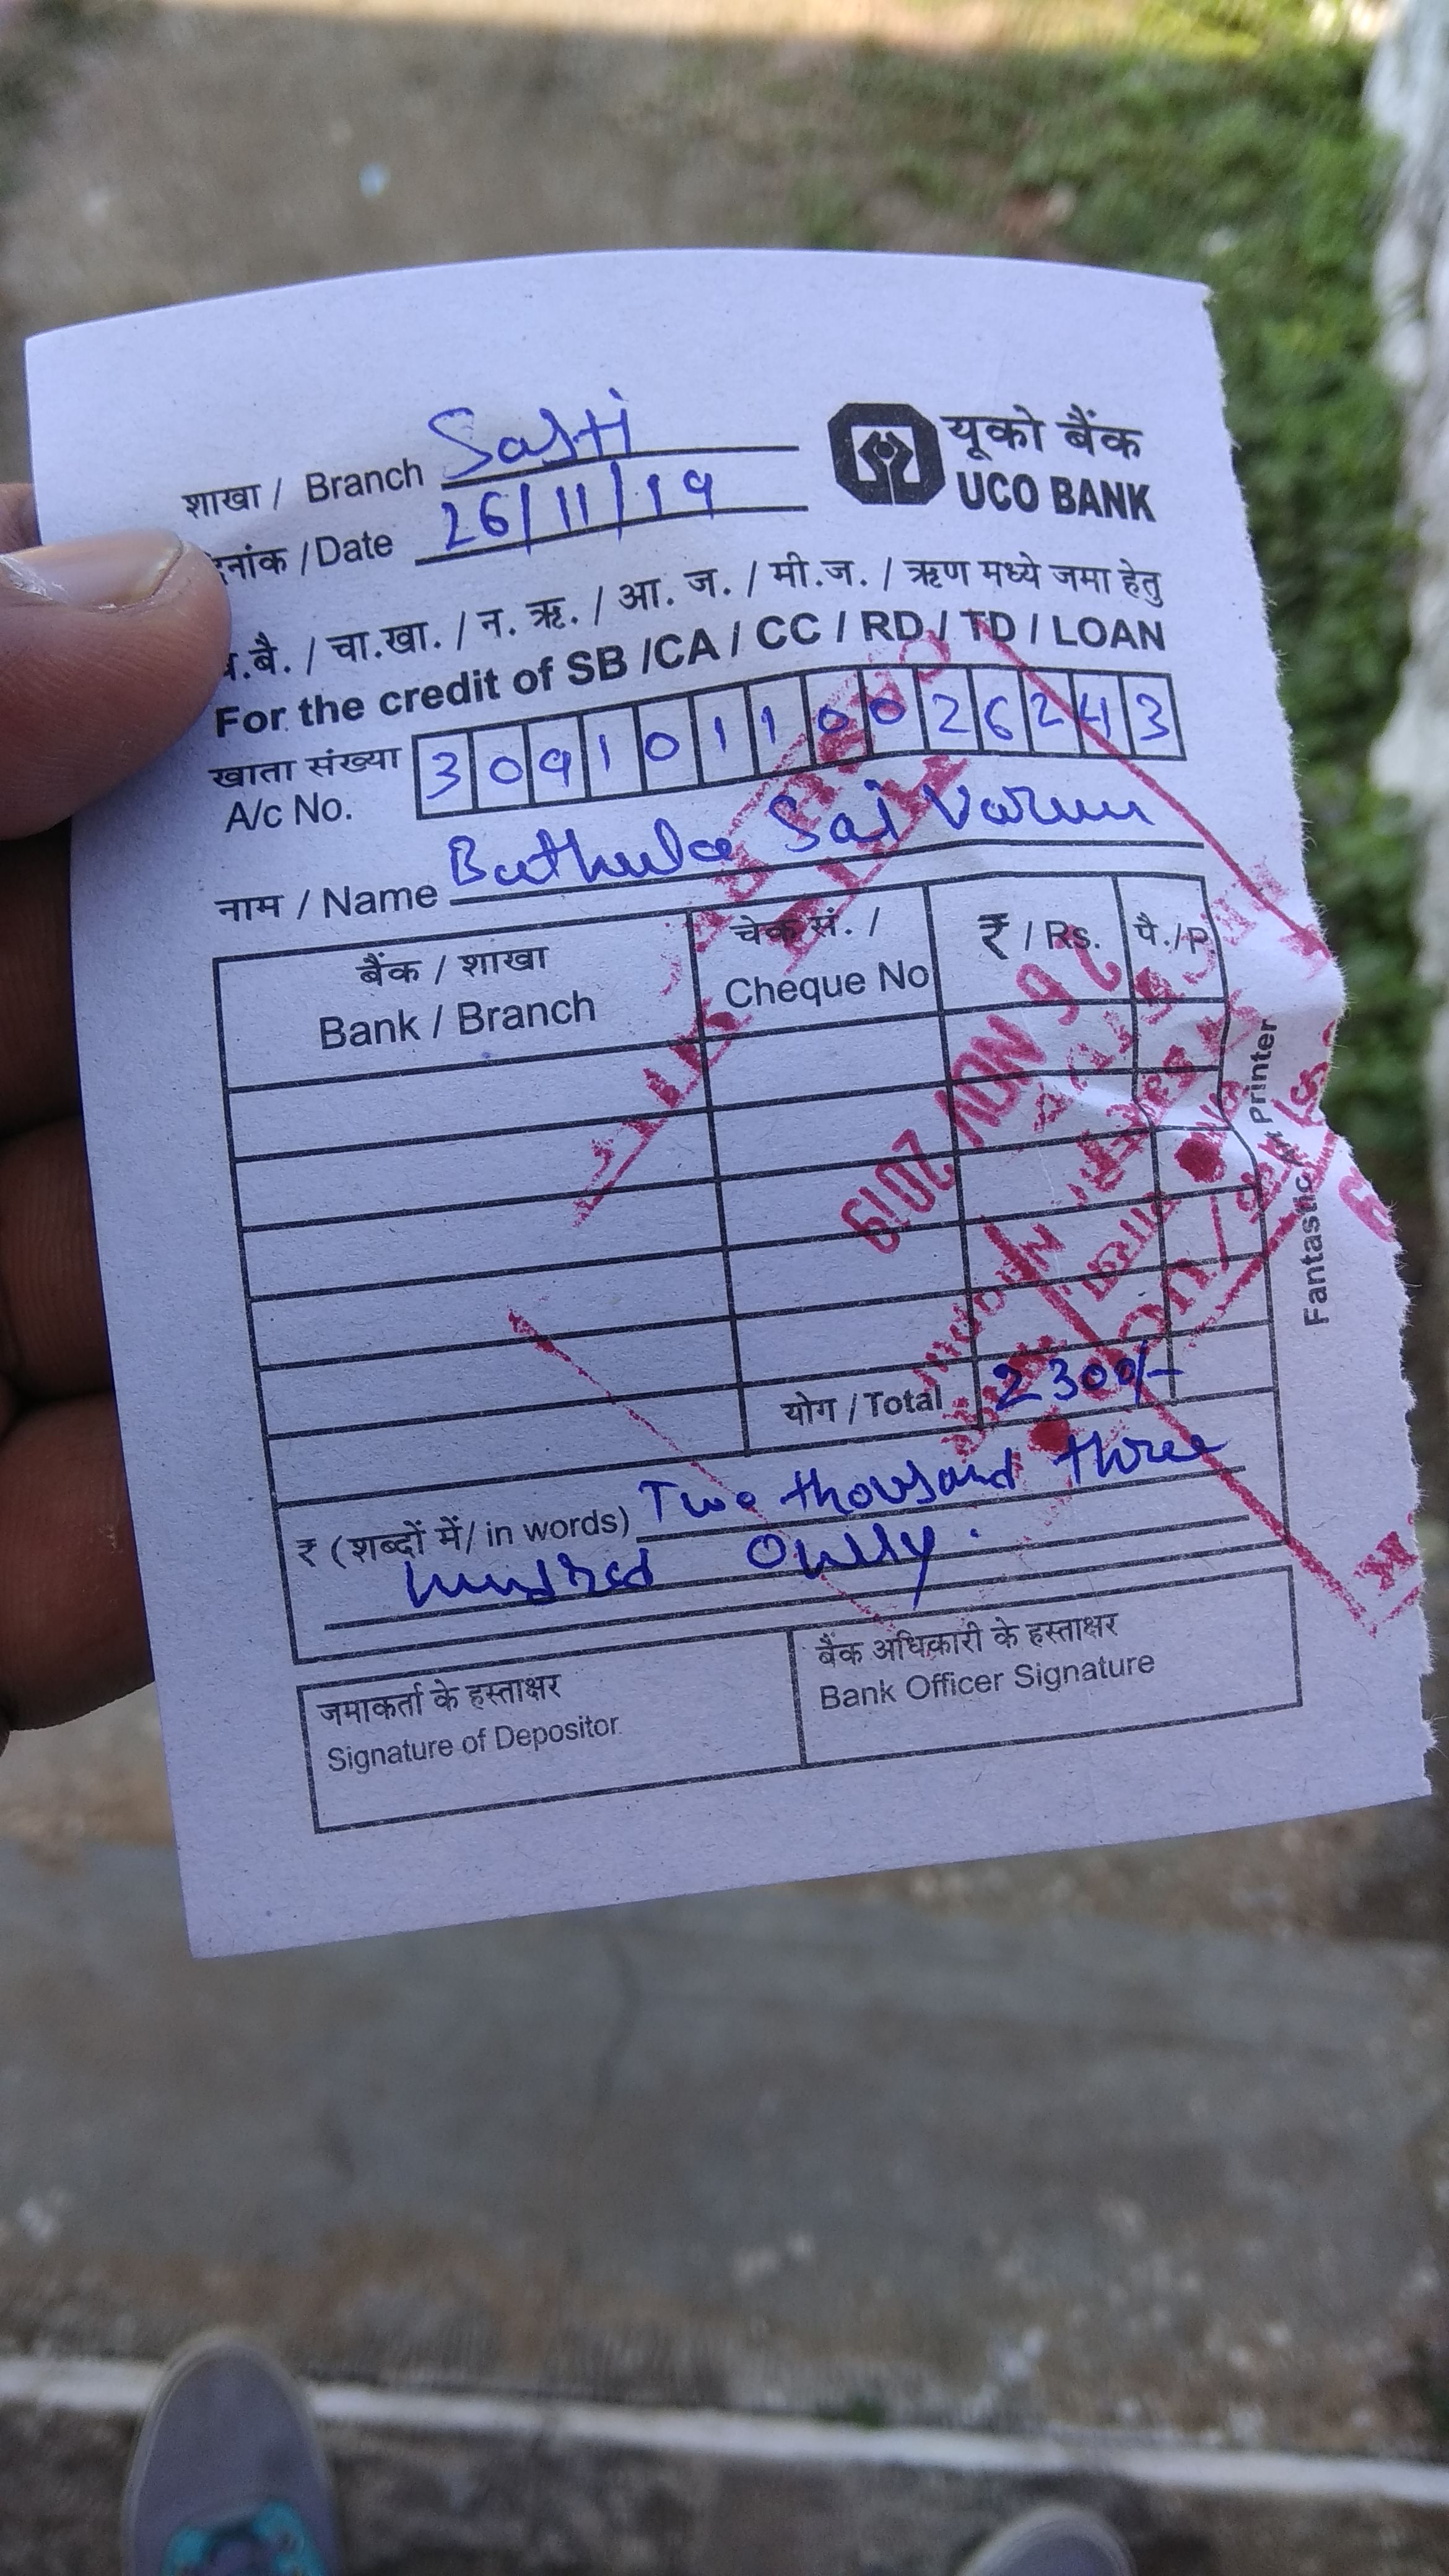 शाखा / Branch Sasti
यूको बैंक
UCO BANK
दिनांक /Date 26/11/19
.बै. / चा.खा. / न. ऋ. / आ. ज. / मी.ज. / ऋण मध्ये जमा हेतु
For the credit of SB /CA / CC / RD / TD / LOAN
खाता संख्या
A/c No. 30910110026243
नाम / Name Bathula Sai Varun
बैंक / शाखा चेक सं. / ₹ / Rs. पै./P.
Bank / Branch Cheque No
26 NOV 2019
योग / Total 2300/-
₹ (शब्दों में/ in words) Two thousand three
hundred Only.
जमाकर्ता के हस्ताक्षर
Signature of Depositor
बैंक अधिकारी के हस्ताक्षर
Bank Officer Signature
Fantastic Art Printer